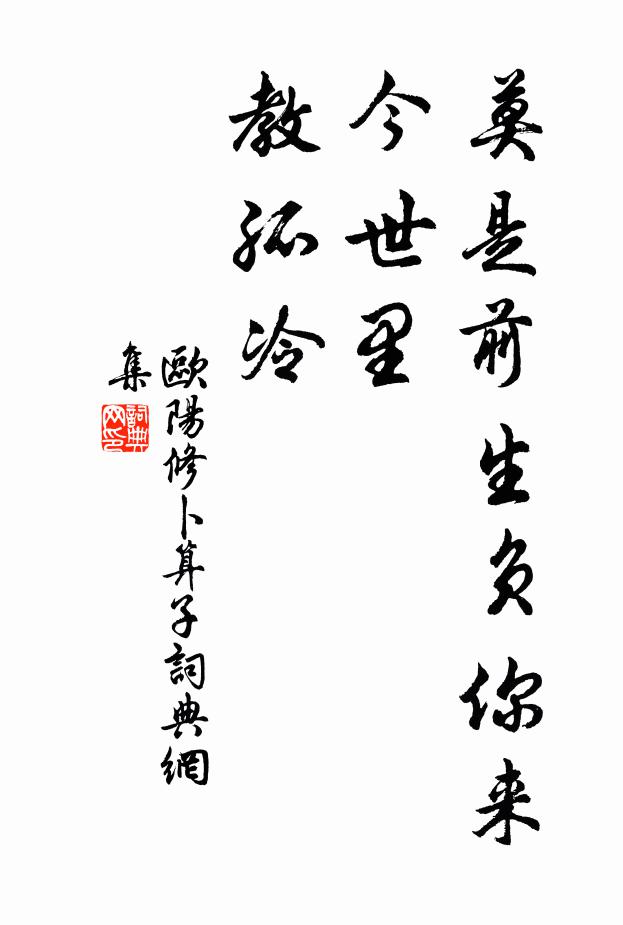 莫是前生负你来
今世里
教孤冷
歐陽修卜算子詞典網
集
詞典网印